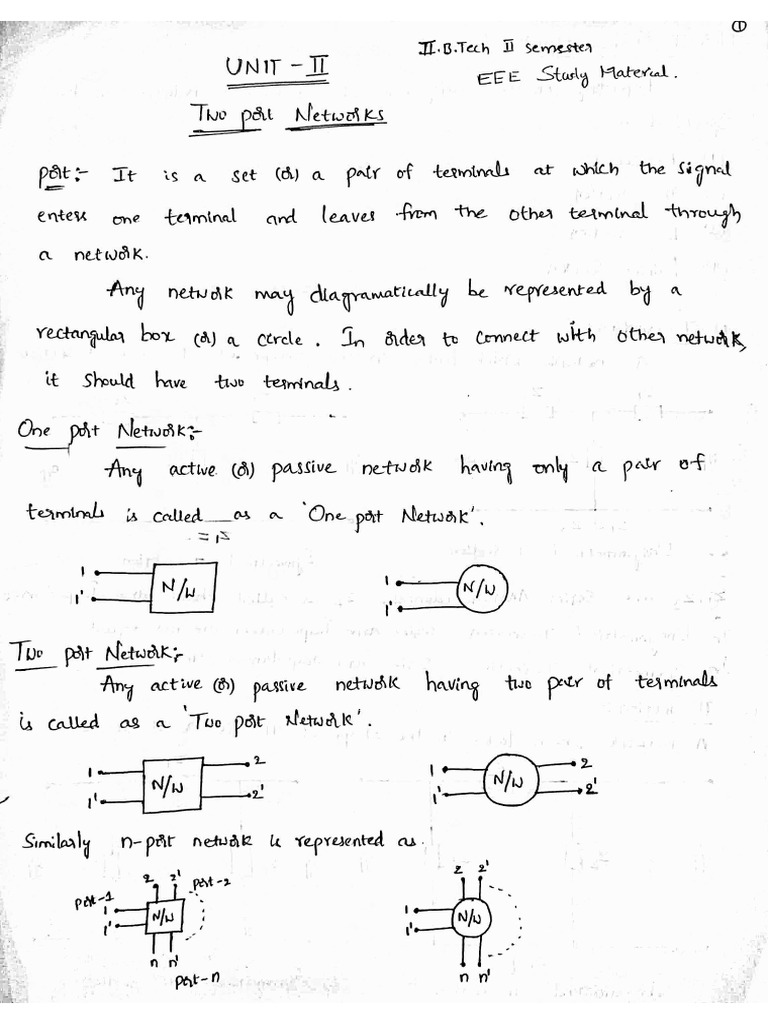 ①
II.B.Tech II Semester
UNIT - II
EEE Study Material.
Two port Networks
port:- It is a set (or) a pair of terminals at which the signal
enters one terminal and leaves from the other terminal through
a network.
Any network may diagramatically be represented by a
rectangular box (or) a circle. In order to connect with other network,
it should have two terminals.
One port Network:-
Any active (or) passive network having only a pair of
terminals is called as a 'One port Network'.
1 N/W 1 N/W
1' 1'
Two port Network:-
Any active (or) passive network having two pair of terminals
is called as a 'Two port Network'.
1 N/W 2 1 N/W 2
1' 2' 1' 2'
Similarly n-port network is represented as.
2 2' port-2 2 2'
port-1
1 N/W 1 N/W
1' 1'
n n' n n'
port-n